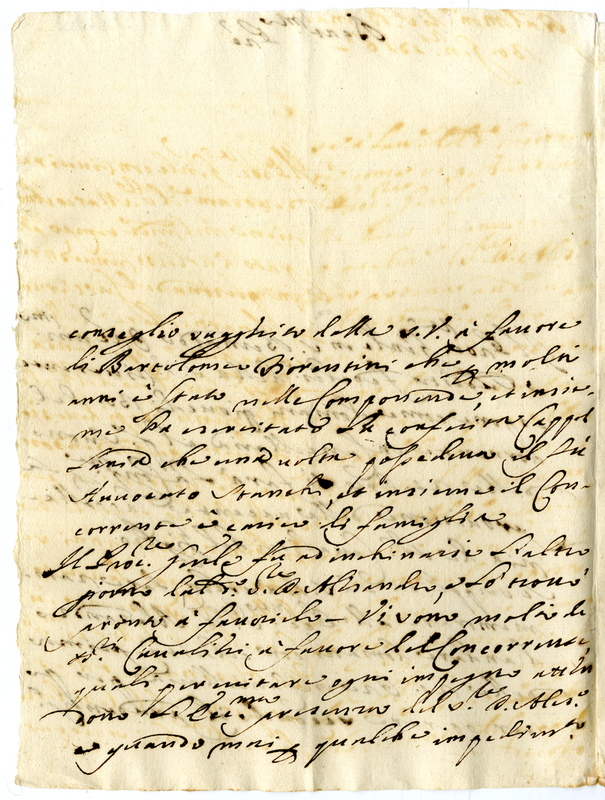 conseglio suggerito dalla S. V. à favore
di Bartolomeo Fiorentini che p molti
anni è stato nelle Componende, et insie-
me ha esercitato la conferita Cappel
lania che una volta possedeva il fù
Avvocato Stanchi, et insieme il Con-
corrente è carico di famiglia
Il Proc.re Gen.le fu ad inchinarsi l'altro
giorno D. Alesandro, e lo trovò
à favorirlo - Vi sono molti
Cavalieri à favore del Concorrente,
quali per evitare ogni impegno atten
dono presenza del D. Ales.o
e quando mai p qualche impedim.to